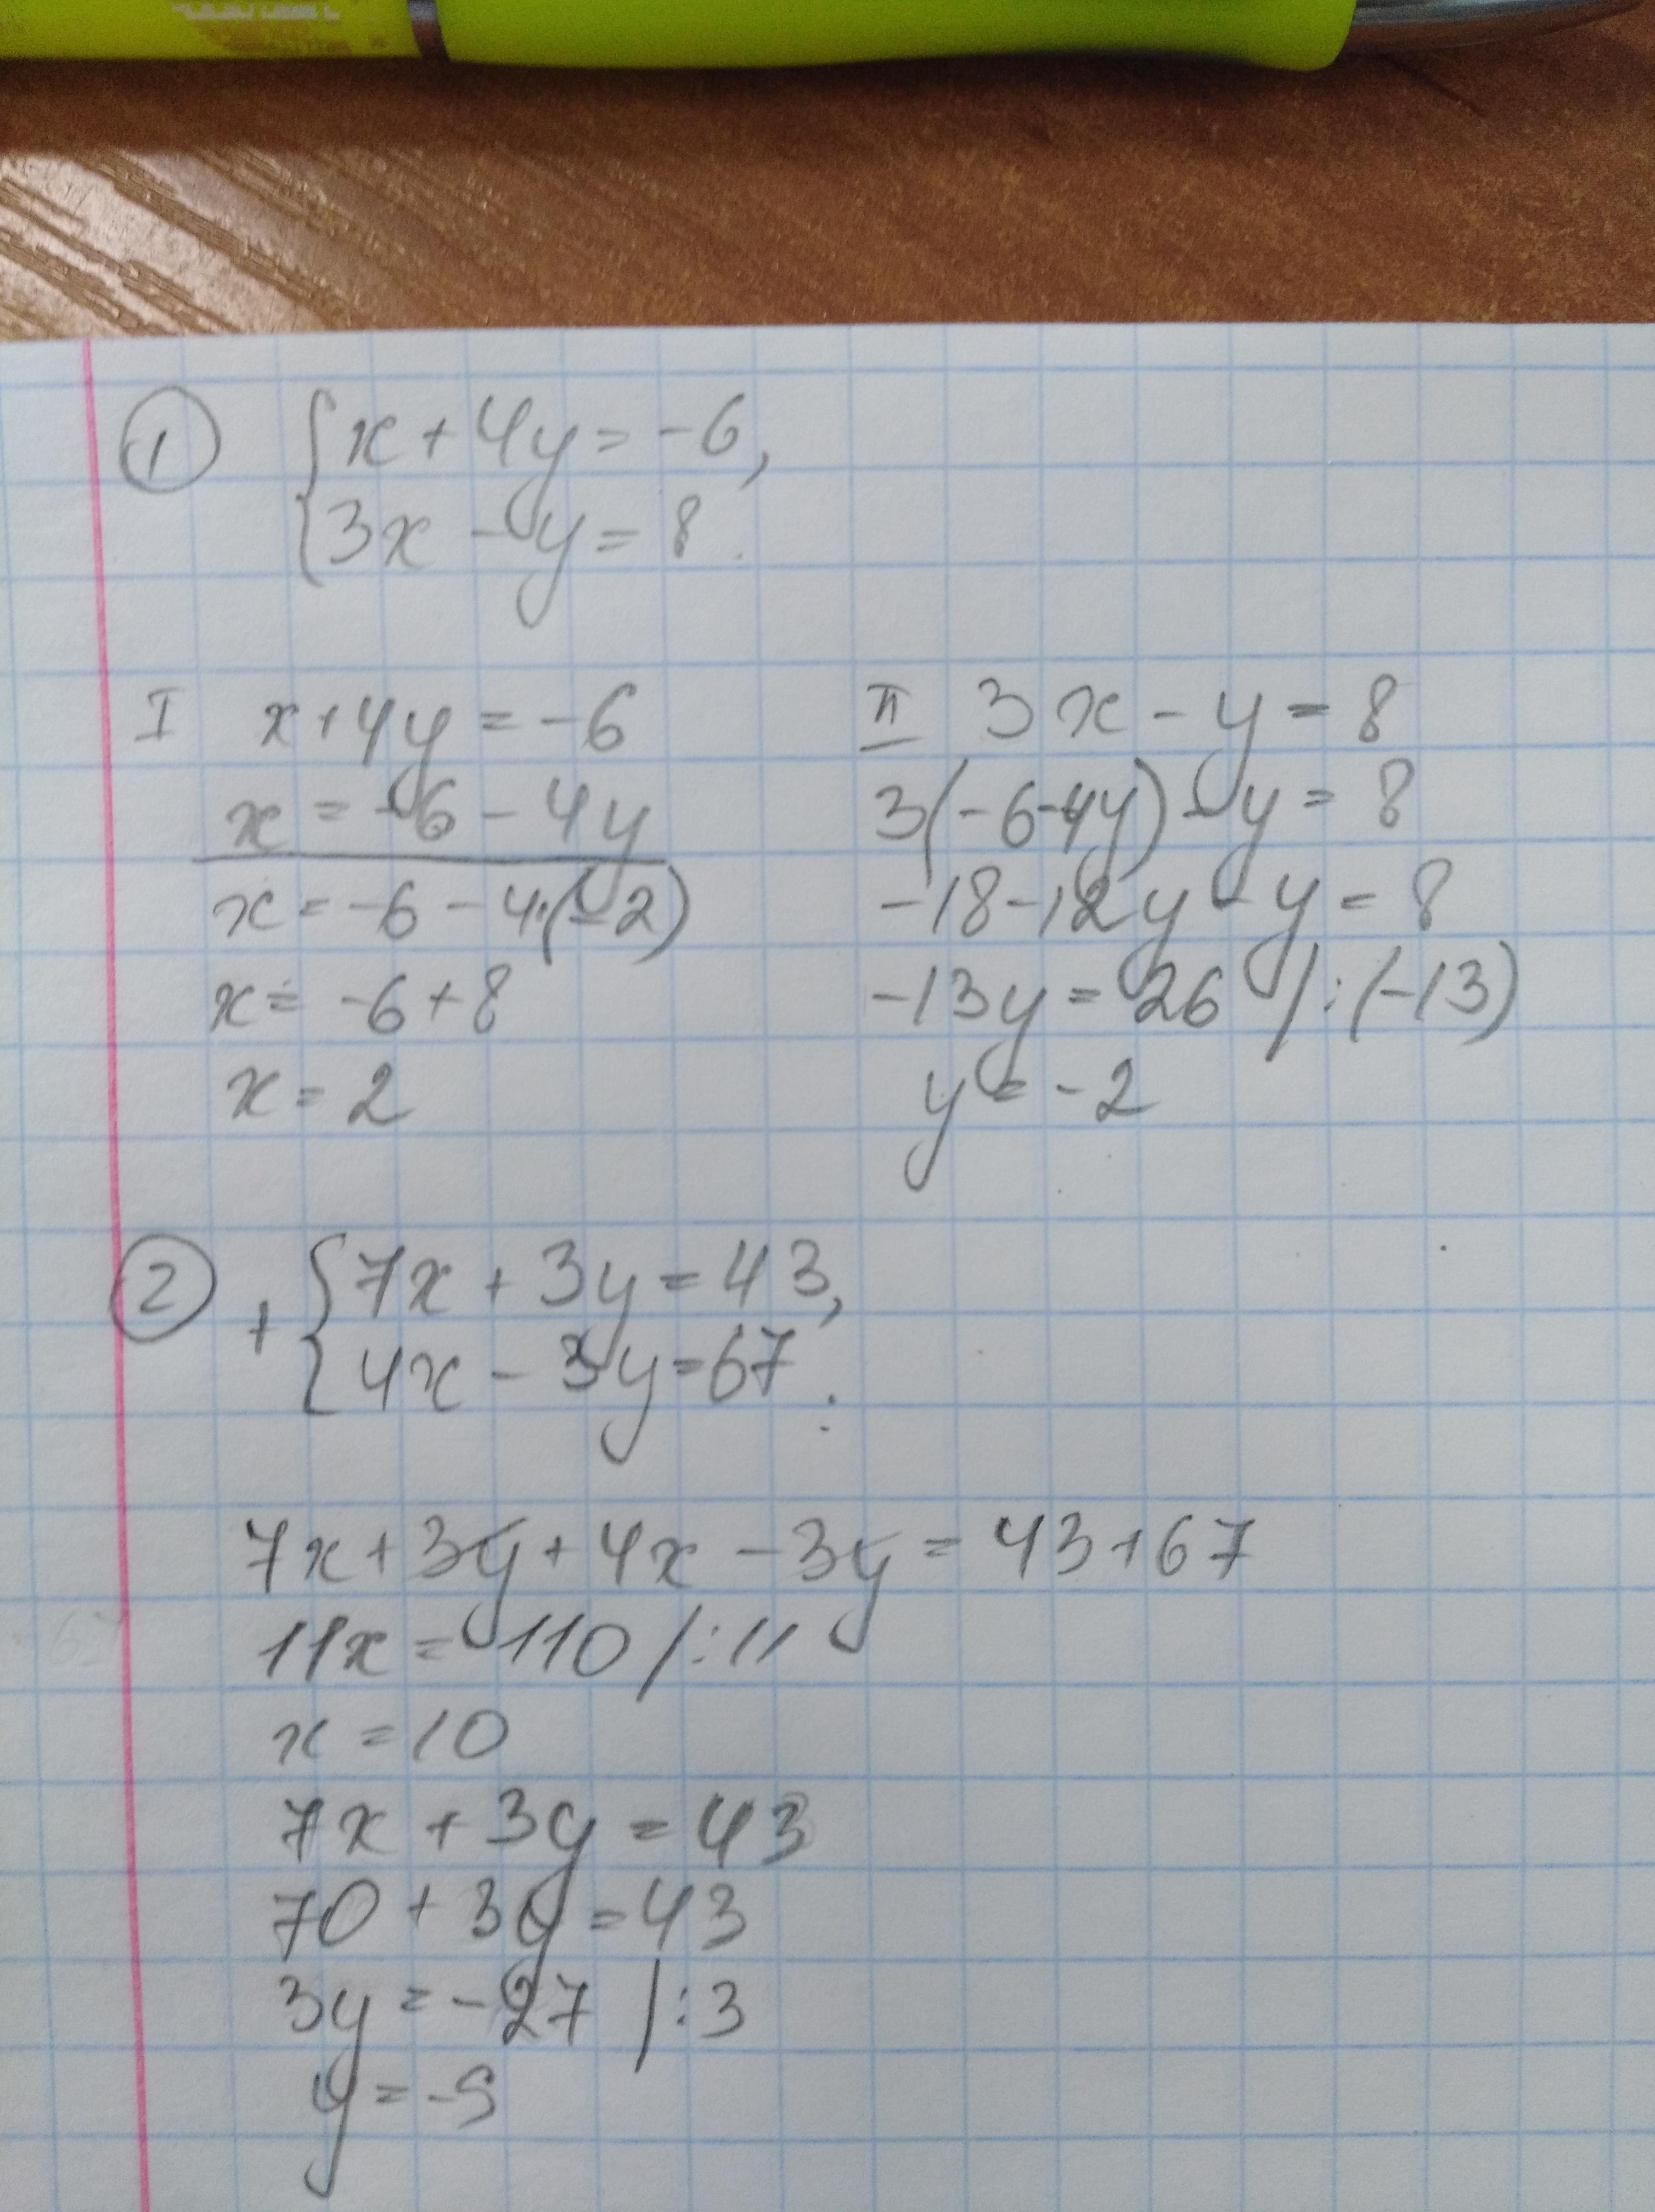 1 { x + 4y = -6,
3x - y = 8.
I x + 4y = -6
x = -6 - 4y
x = -6 - 4·(-2)
x = -6 + 8
x = 2
II 3x - y = 8
3(-6-4y) - y = 8
-18 - 12y - y = 8
-13y = 26 /:(-13)
y = -2
2 + { 7x + 3y = 43,
4x - 3y = 67.
7x + 3y + 4x - 3y = 43 + 67
11x = 110 /:11
x = 10
7x + 3y = 43
70 + 3y = 43
3y = -27 /:3
y = -9